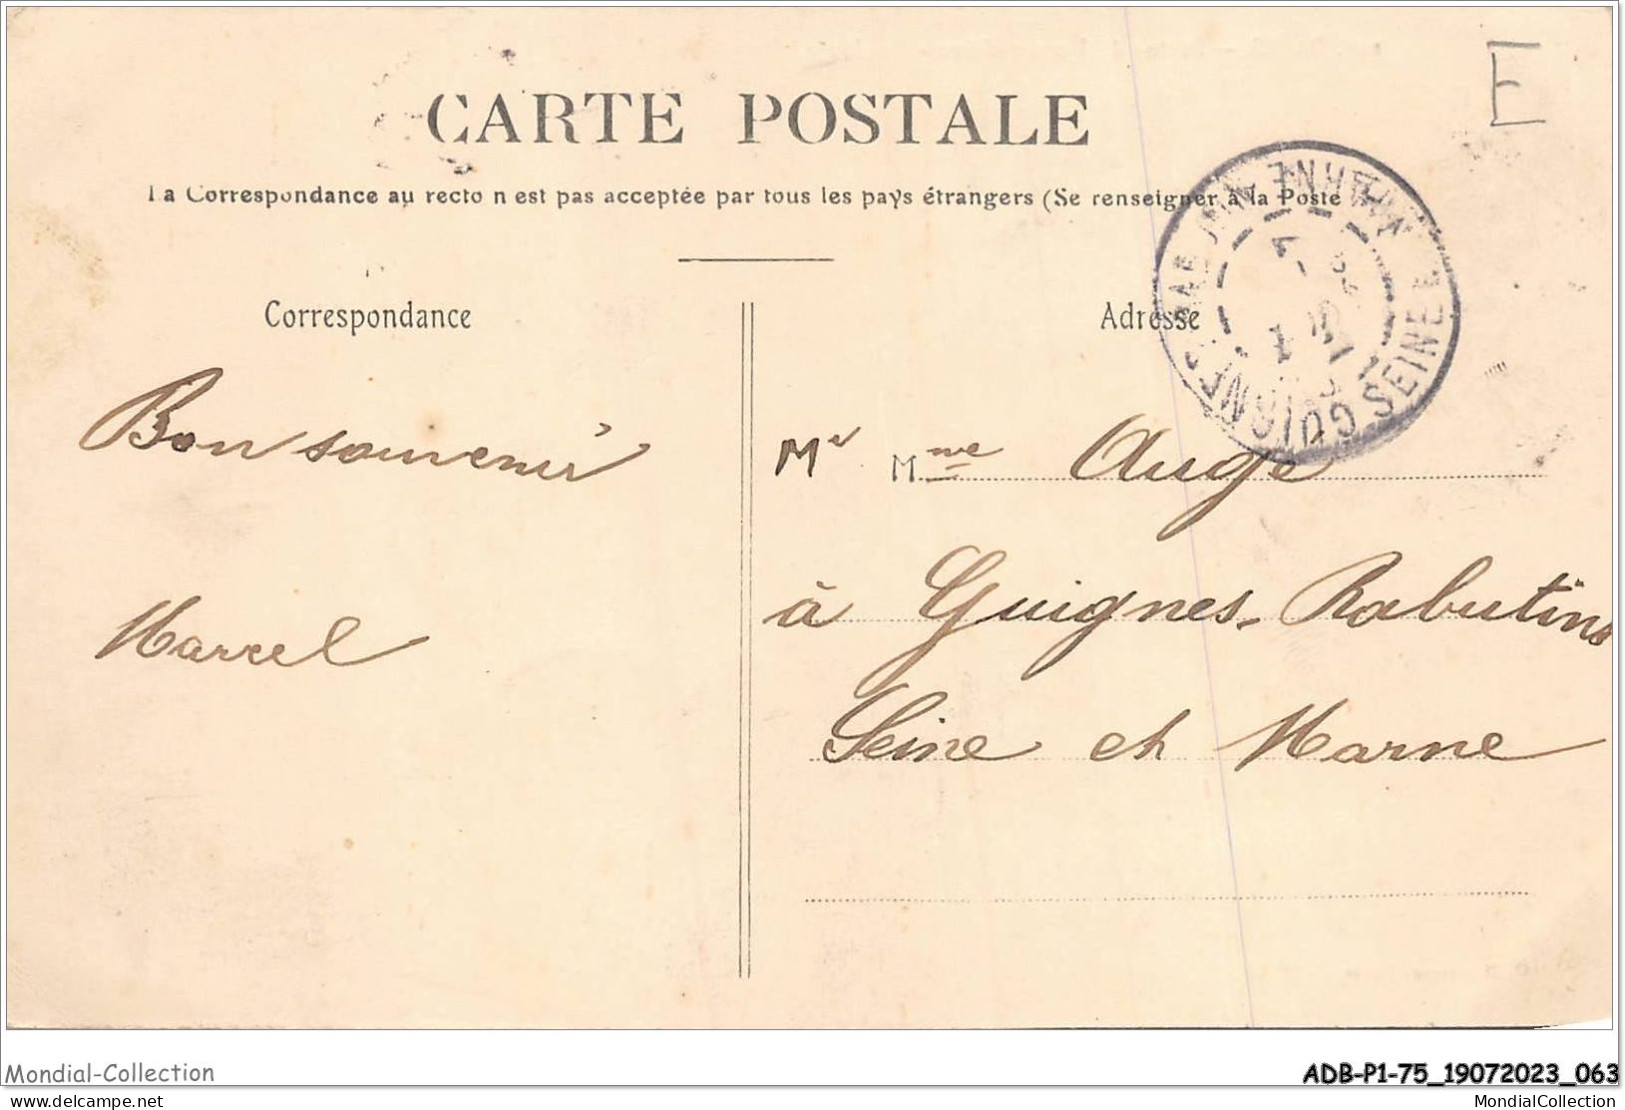 E
CARTE POSTALE
La Correspondance au recto n est pas acceptée par tous les pays étrangers (Se renseigner à la Poste
Correspondance
Bon souvenir
Marcel
Adresse
Mr Mme Augé
à Guignes-Rabutins
Seine et Marne
GUIGNES-RABUTIN
SEINE ET MARNE
Mondial-Collection
ADB-P1-75_19072023_063
delcampe.net
MondialCollection